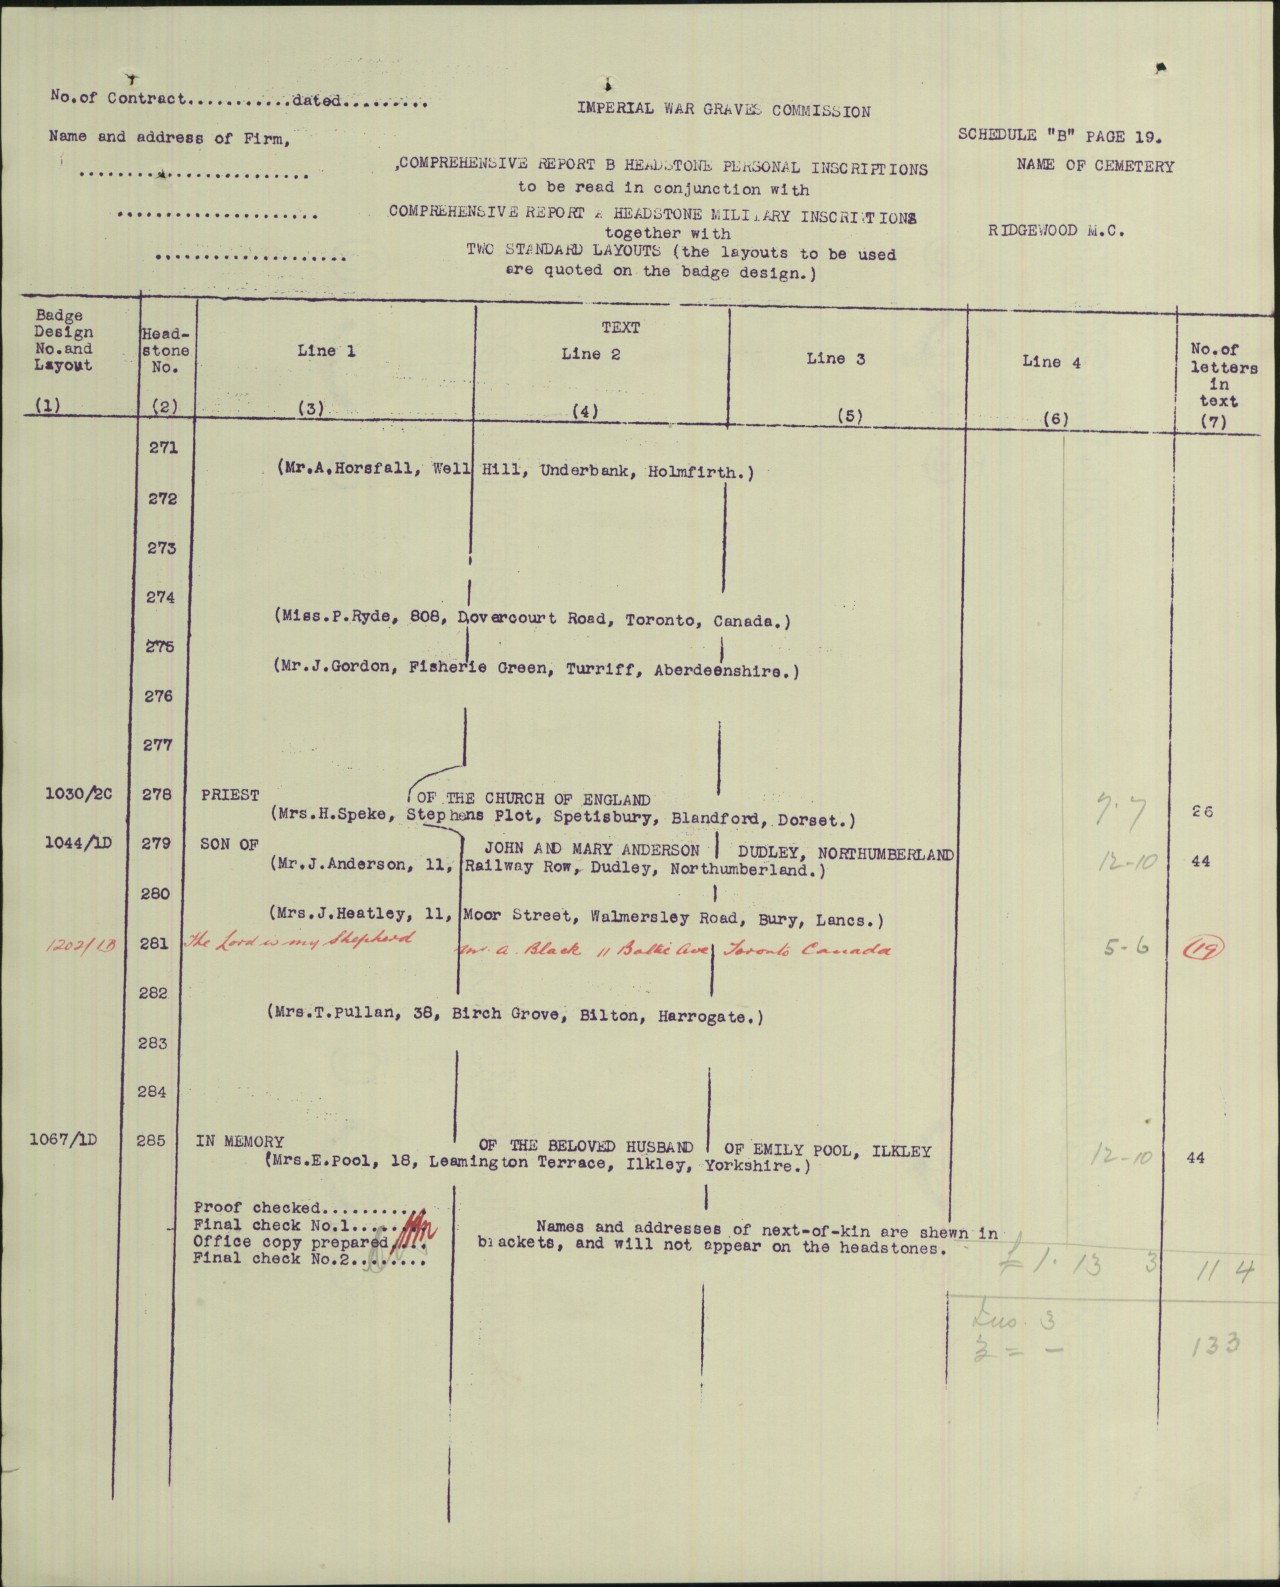 No.of Contract............dated..........
IMPERIAL WAR GRAVES COMMISSION
Name and address of Firm,
SCHEDULE "B" PAGE 19.
COMPREHENSIVE REPORT B HEADSTONE PERSONAL INSCRIPTIONS
NAME OF CEMETERY
to be read in conjunction with
COMPREHENSIVE REPORT A HEADSTONE MILITARY INSCRIPTIONS
together with
RIDGEWOOD M.C.
TWO STANDARD LAYOUTS (the layouts to be used
are quoted on the badge design.)
Badge Design No.and Layout (1)
Head-stone No. (2)
TEXT
Line 1 (3)
Line 2 (4)
Line 3 (5)
Line 4 (6)
No.of letters in text (7)
271
(Mr.A.Horsfall, Well Hill, Underbank, Holmfirth.)
272
273
274
(Miss.P.Ryde, 808, Dovercourt Road, Toronto, Canada.)
275
(Mr.J.Gordon, Fisherie Green, Turriff, Aberdeenshire.)
276
277
1030/2C 278 PRIEST OF THE CHURCH OF ENGLAND 7.7 26
(Mrs.H.Speke, Stephens Plot, Spetisbury, Blandford, Dorset.)
1044/1D 279 SON OF JOHN AND MARY ANDERSON DUDLEY, NORTHUMBERLAND 12-10 44
(Mr.J.Anderson, 11, Railway Row, Dudley, Northumberland.)
280
(Mrs.J.Heatley, 11, Moor Street, Walmersley Road, Bury, Lancs.)
1202/1B 281 The Lord is my Shepherd Mr. A. Black 11 Ave Toronto Canada 5-6 19
282
(Mrs.T.Pullan, 38, Birch Grove, Bilton, Harrogate.)
283
284
1067/1D 285 IN MEMORY OF THE BELOVED HUSBAND OF EMILY POOL, ILKLEY 12-10 44
(Mrs.E.Pool, 18, Leamington Terrace, Ilkley, Yorkshire.)
Proof checked...........
Final check No.1........
Office copy prepared....
Final check No.2........
Names and addresses of next-of-kin are shewn in
brackets, and will not appear on the headstones.
£1.13 3 114
Ins. 3
3 = - 133